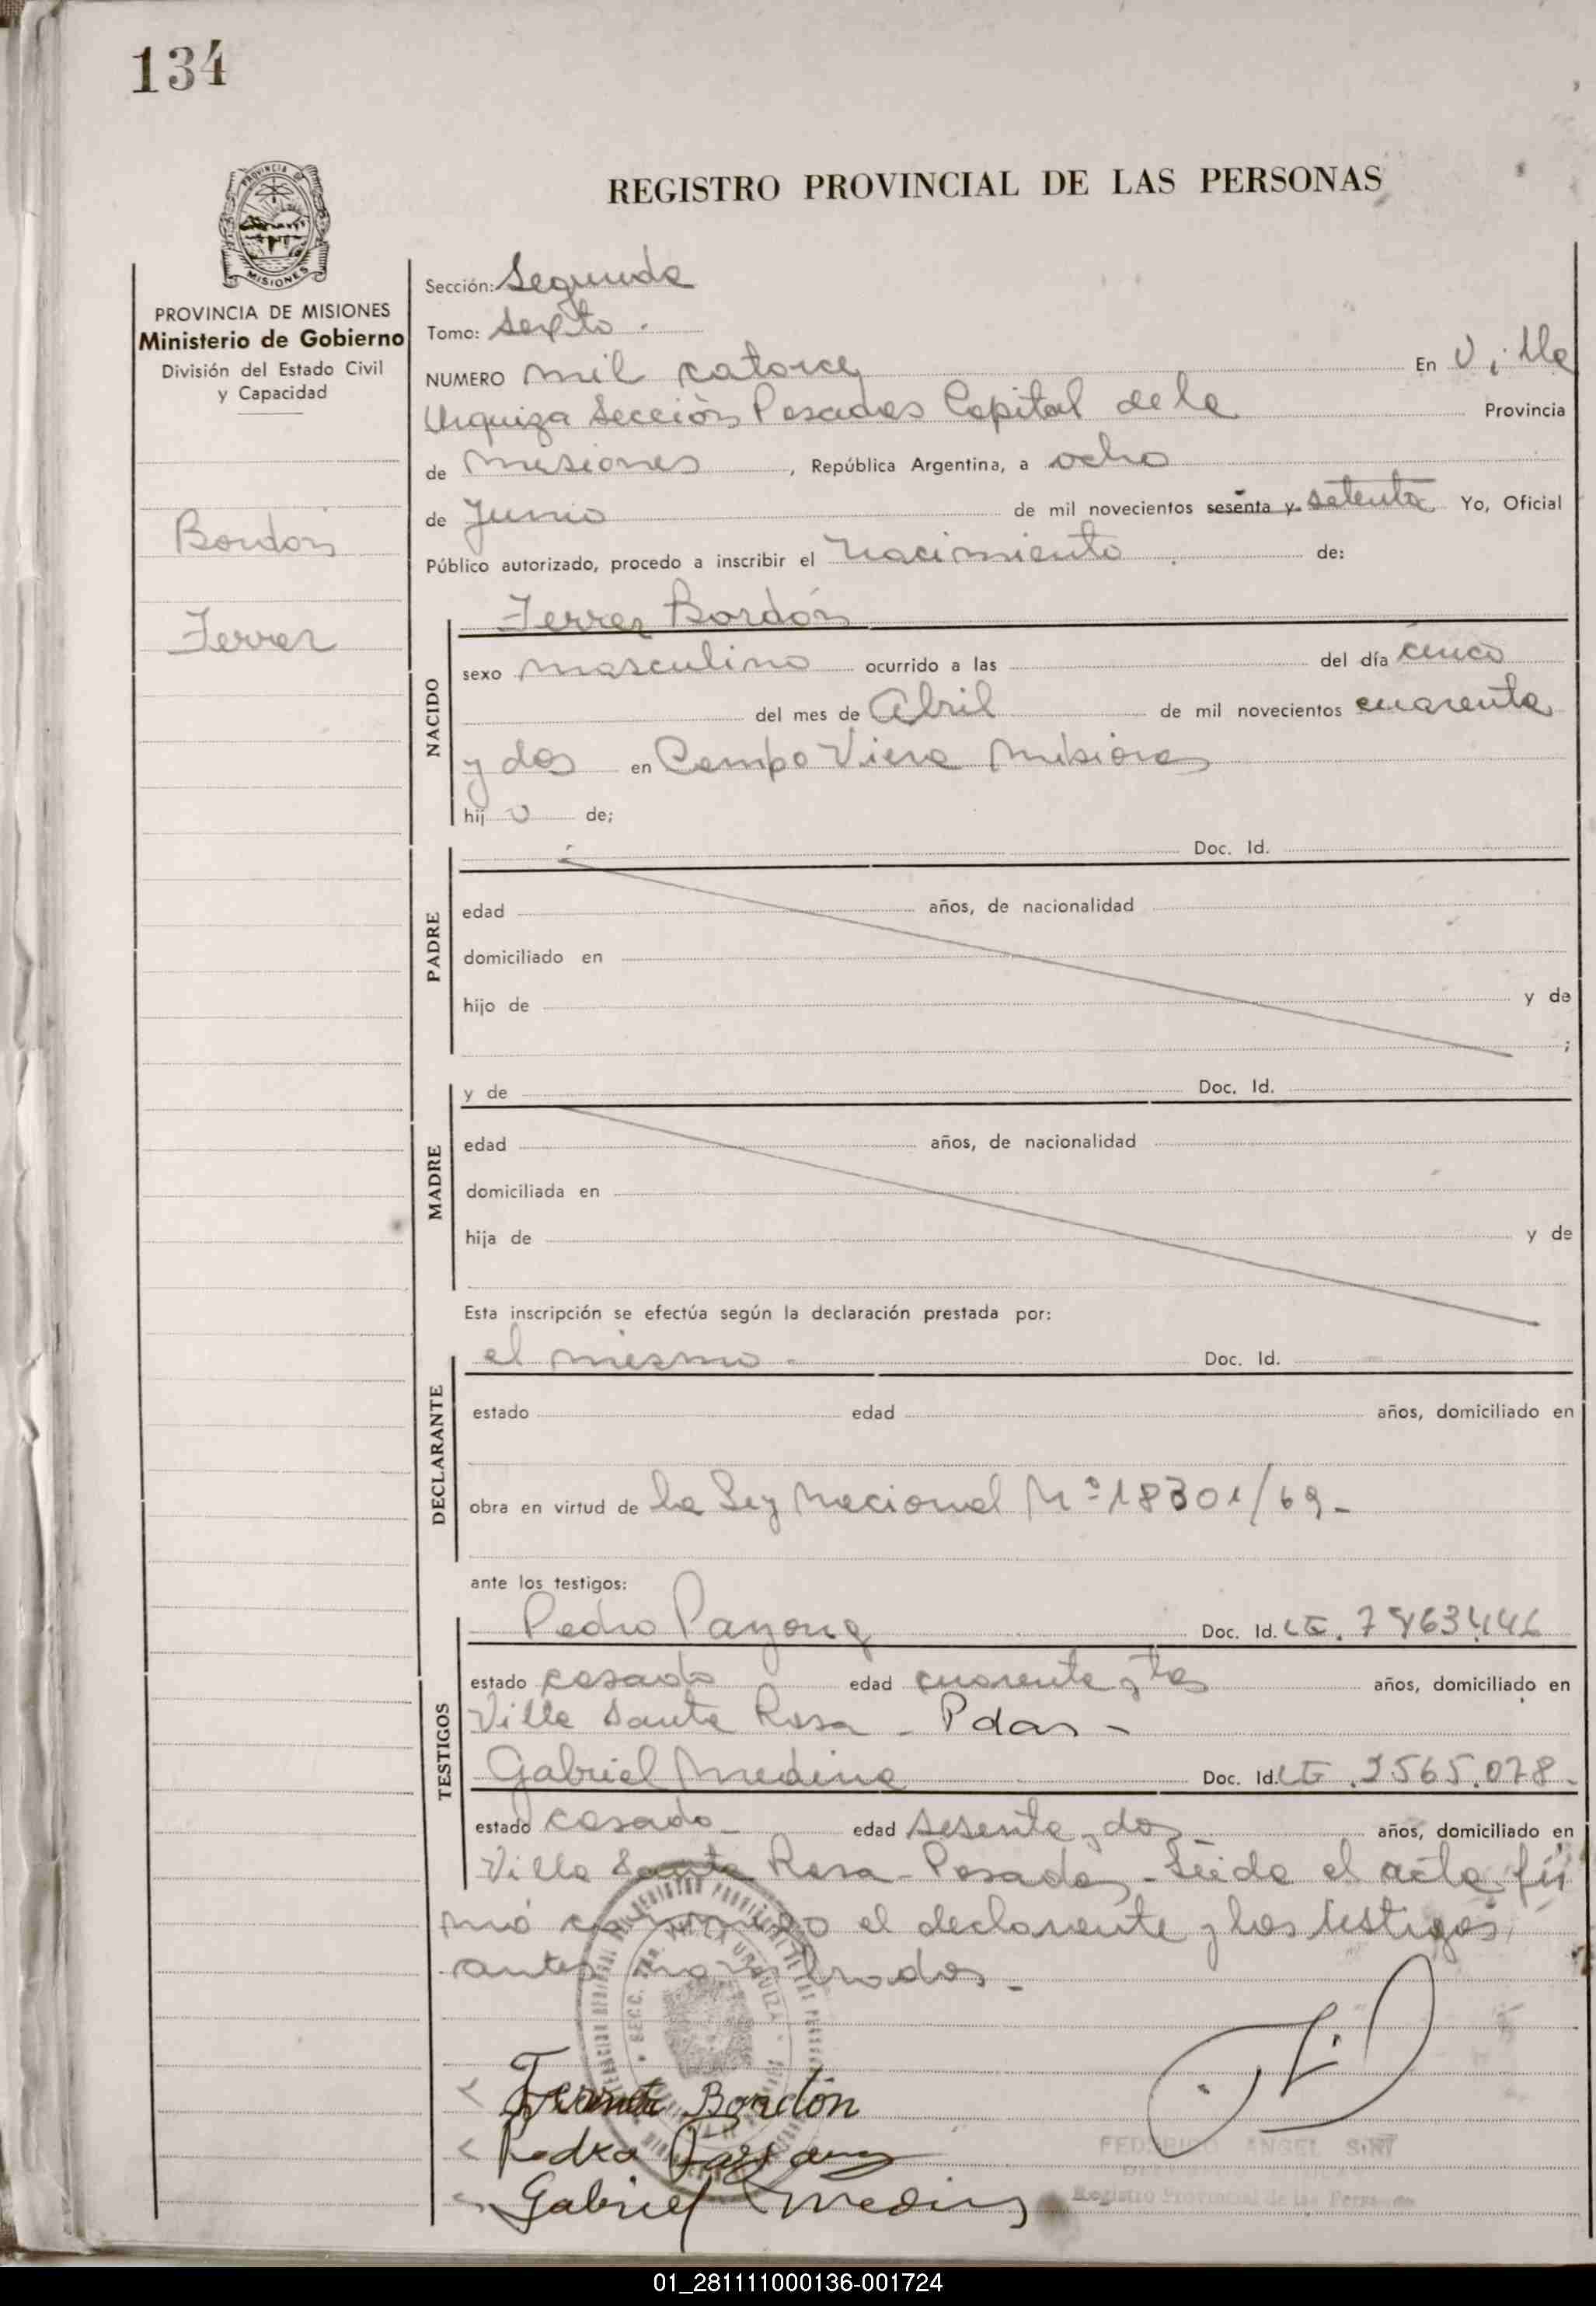 134
REGISTRO PROVINCIAL DE LAS PERSONAS
PROVINCIA DE MISIONES
Ministerio de Gobierno
División del Estado Civil
y Capacidad
Bordón
Ferrer
Sección: Segunda
Tomo: Sexto.
NUMERO mil catorce En Villa
Urquiza Sección Posadas Capital de la Provincia
de Misiones, República Argentina, a ocho
de Junio de mil novecientos sesenta y setenta Yo, Oficial
Público autorizado, procedo a inscribir el nacimiento de:
Ferrer Bordón
NACIDO
sexo masculino ocurrido a las del día cinco
del mes de Abril de mil novecientos cuarenta
y dos en Campo Viera Misiones
hijo de;
PADRE
Doc. Id.
edad años, de nacionalidad
domiciliado en
hijo de y de
;
MADRE
y de Doc. Id.
edad años, de nacionalidad
domiciliada en
hija de y de
Esta inscripción se efectúa según la declaración prestada por:
DECLARANTE
el mismo - Doc. Id.
estado edad años, domiciliado en
obra en virtud de la Ley Nacional Nº 18301/69-
ante los testigos:
TESTIGOS
Pedro Doc. Id. LE.
estado casado edad cuarenta y tres años, domiciliado en
Villa Santa Rosa - Pdas -
Gabriel Medina Doc. Id. LE
estado casado edad sesenta y dos años, domiciliado en
Villa Santa Rosa - Posadas - Leída el acta fir
mó conmigo el declarante y los testigos
antes nombrados.-
Bordón
Pedro
Gabriel Medina
FEDERICO ANGEL
Registro Provincial de las Personas
01_281111000136-001724